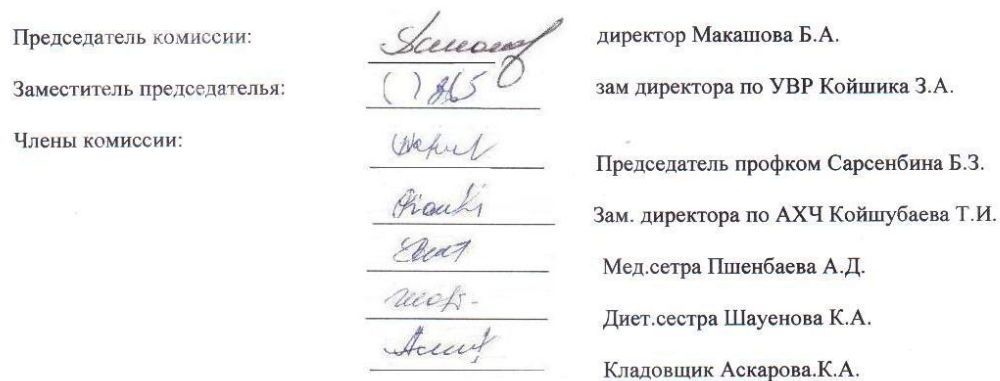 Председатель комиссии: директор Макашова Б.А.
Заместитель председателья: зам директора по УВР Койшика З.А.
Члены комиссии:
Председатель профком Сарсенбина Б.З.
Зам. директора по АХЧ Койшубаева Т.И.
Мед.сетра Пшенбаева А.Д.
Диет.сестра Шауенова К.А.
Кладовщик Аскарова.К.А.